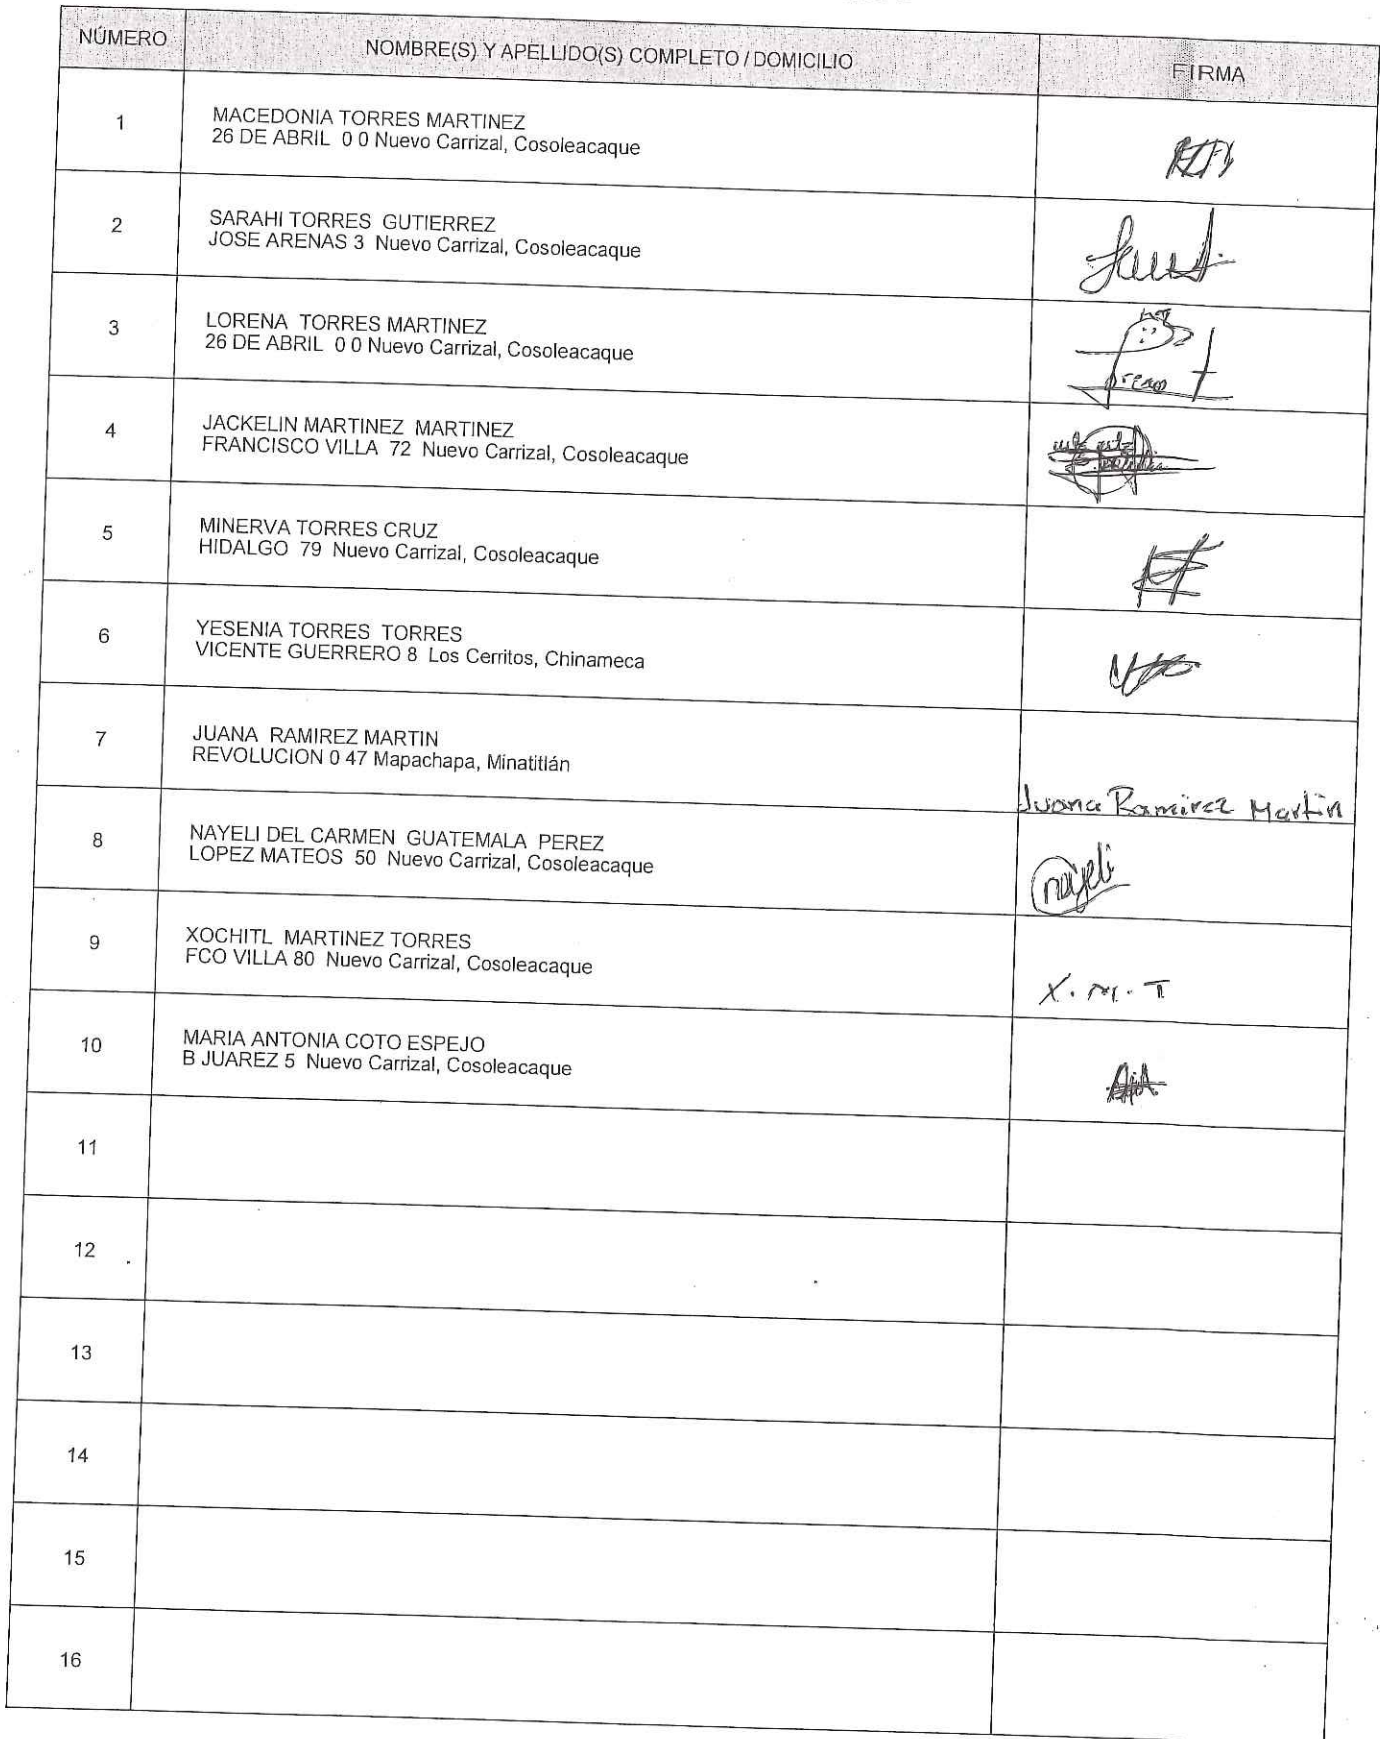 NÚMERO NOMBRE(S) Y APELLIDO(S) COMPLETO / DOMICILIO FIRMA
1 MACEDONIA TORRES MARTINEZ
26 DE ABRIL 0 0 Nuevo Carrizal, Cosoleacaque
2 SARAHI TORRES GUTIERREZ
JOSE ARENAS 3 Nuevo Carrizal, Cosoleacaque
3 LORENA TORRES MARTINEZ
26 DE ABRIL 0 0 Nuevo Carrizal, Cosoleacaque
4 JACKELIN MARTINEZ MARTINEZ
FRANCISCO VILLA 72 Nuevo Carrizal, Cosoleacaque
5 MINERVA TORRES CRUZ
HIDALGO 79 Nuevo Carrizal, Cosoleacaque
6 YESENIA TORRES TORRES
VICENTE GUERRERO 8 Los Cerritos, Chinameca
7 JUANA RAMIREZ MARTIN
REVOLUCION 0 47 Mapachapa, Minatitlán
Juana Ramirez Martin
8 NAYELI DEL CARMEN GUATEMALA PEREZ
LOPEZ MATEOS 50 Nuevo Carrizal, Cosoleacaque
nayeli
9 XOCHITL MARTINEZ TORRES
FCO VILLA 80 Nuevo Carrizal, Cosoleacaque
X. M. T
10 MARIA ANTONIA COTO ESPEJO
B JUAREZ 5 Nuevo Carrizal, Cosoleacaque
11
12
13
14
15
16